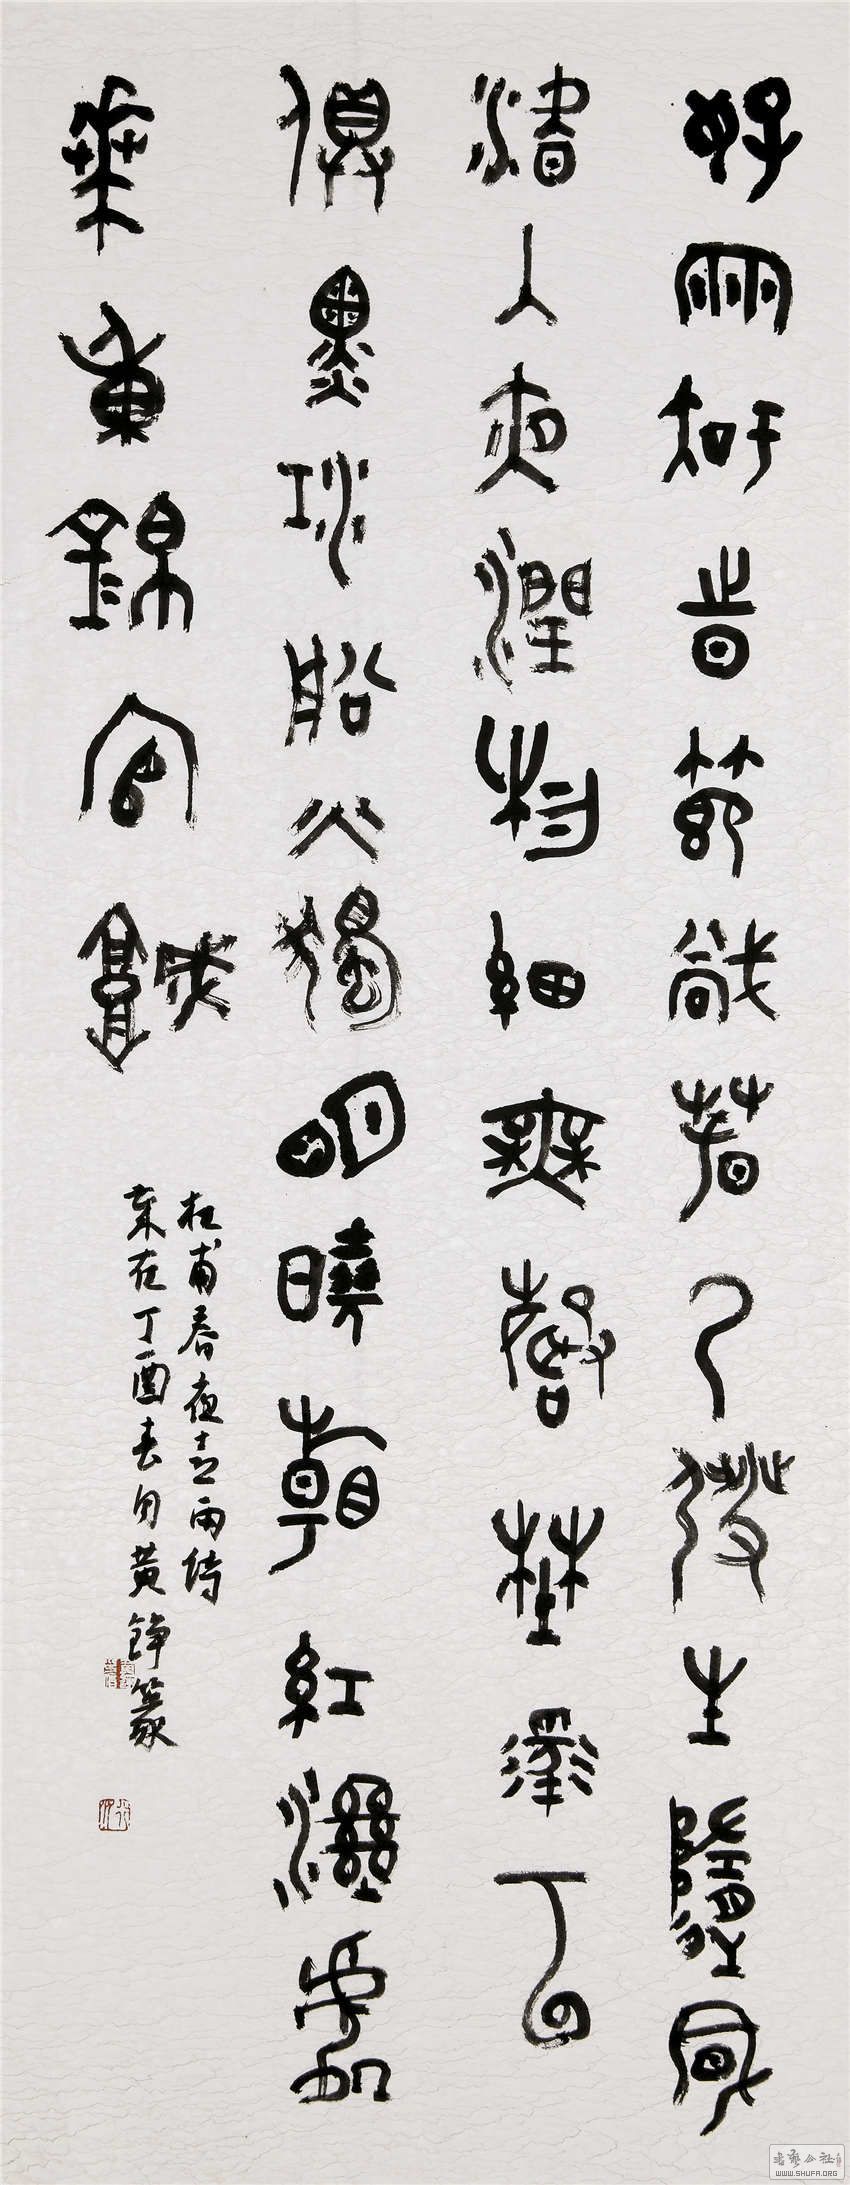 好雨知時節當春乃發生隨風
潛入夜潤物細無聲野徑雲
俱黑江船火獨明曉看紅濕處
華重錦官城
杜甫春夜喜雨詩
歲在丁酉春月黄錚篆
书艺公社
WWW.SHUFA.ORG